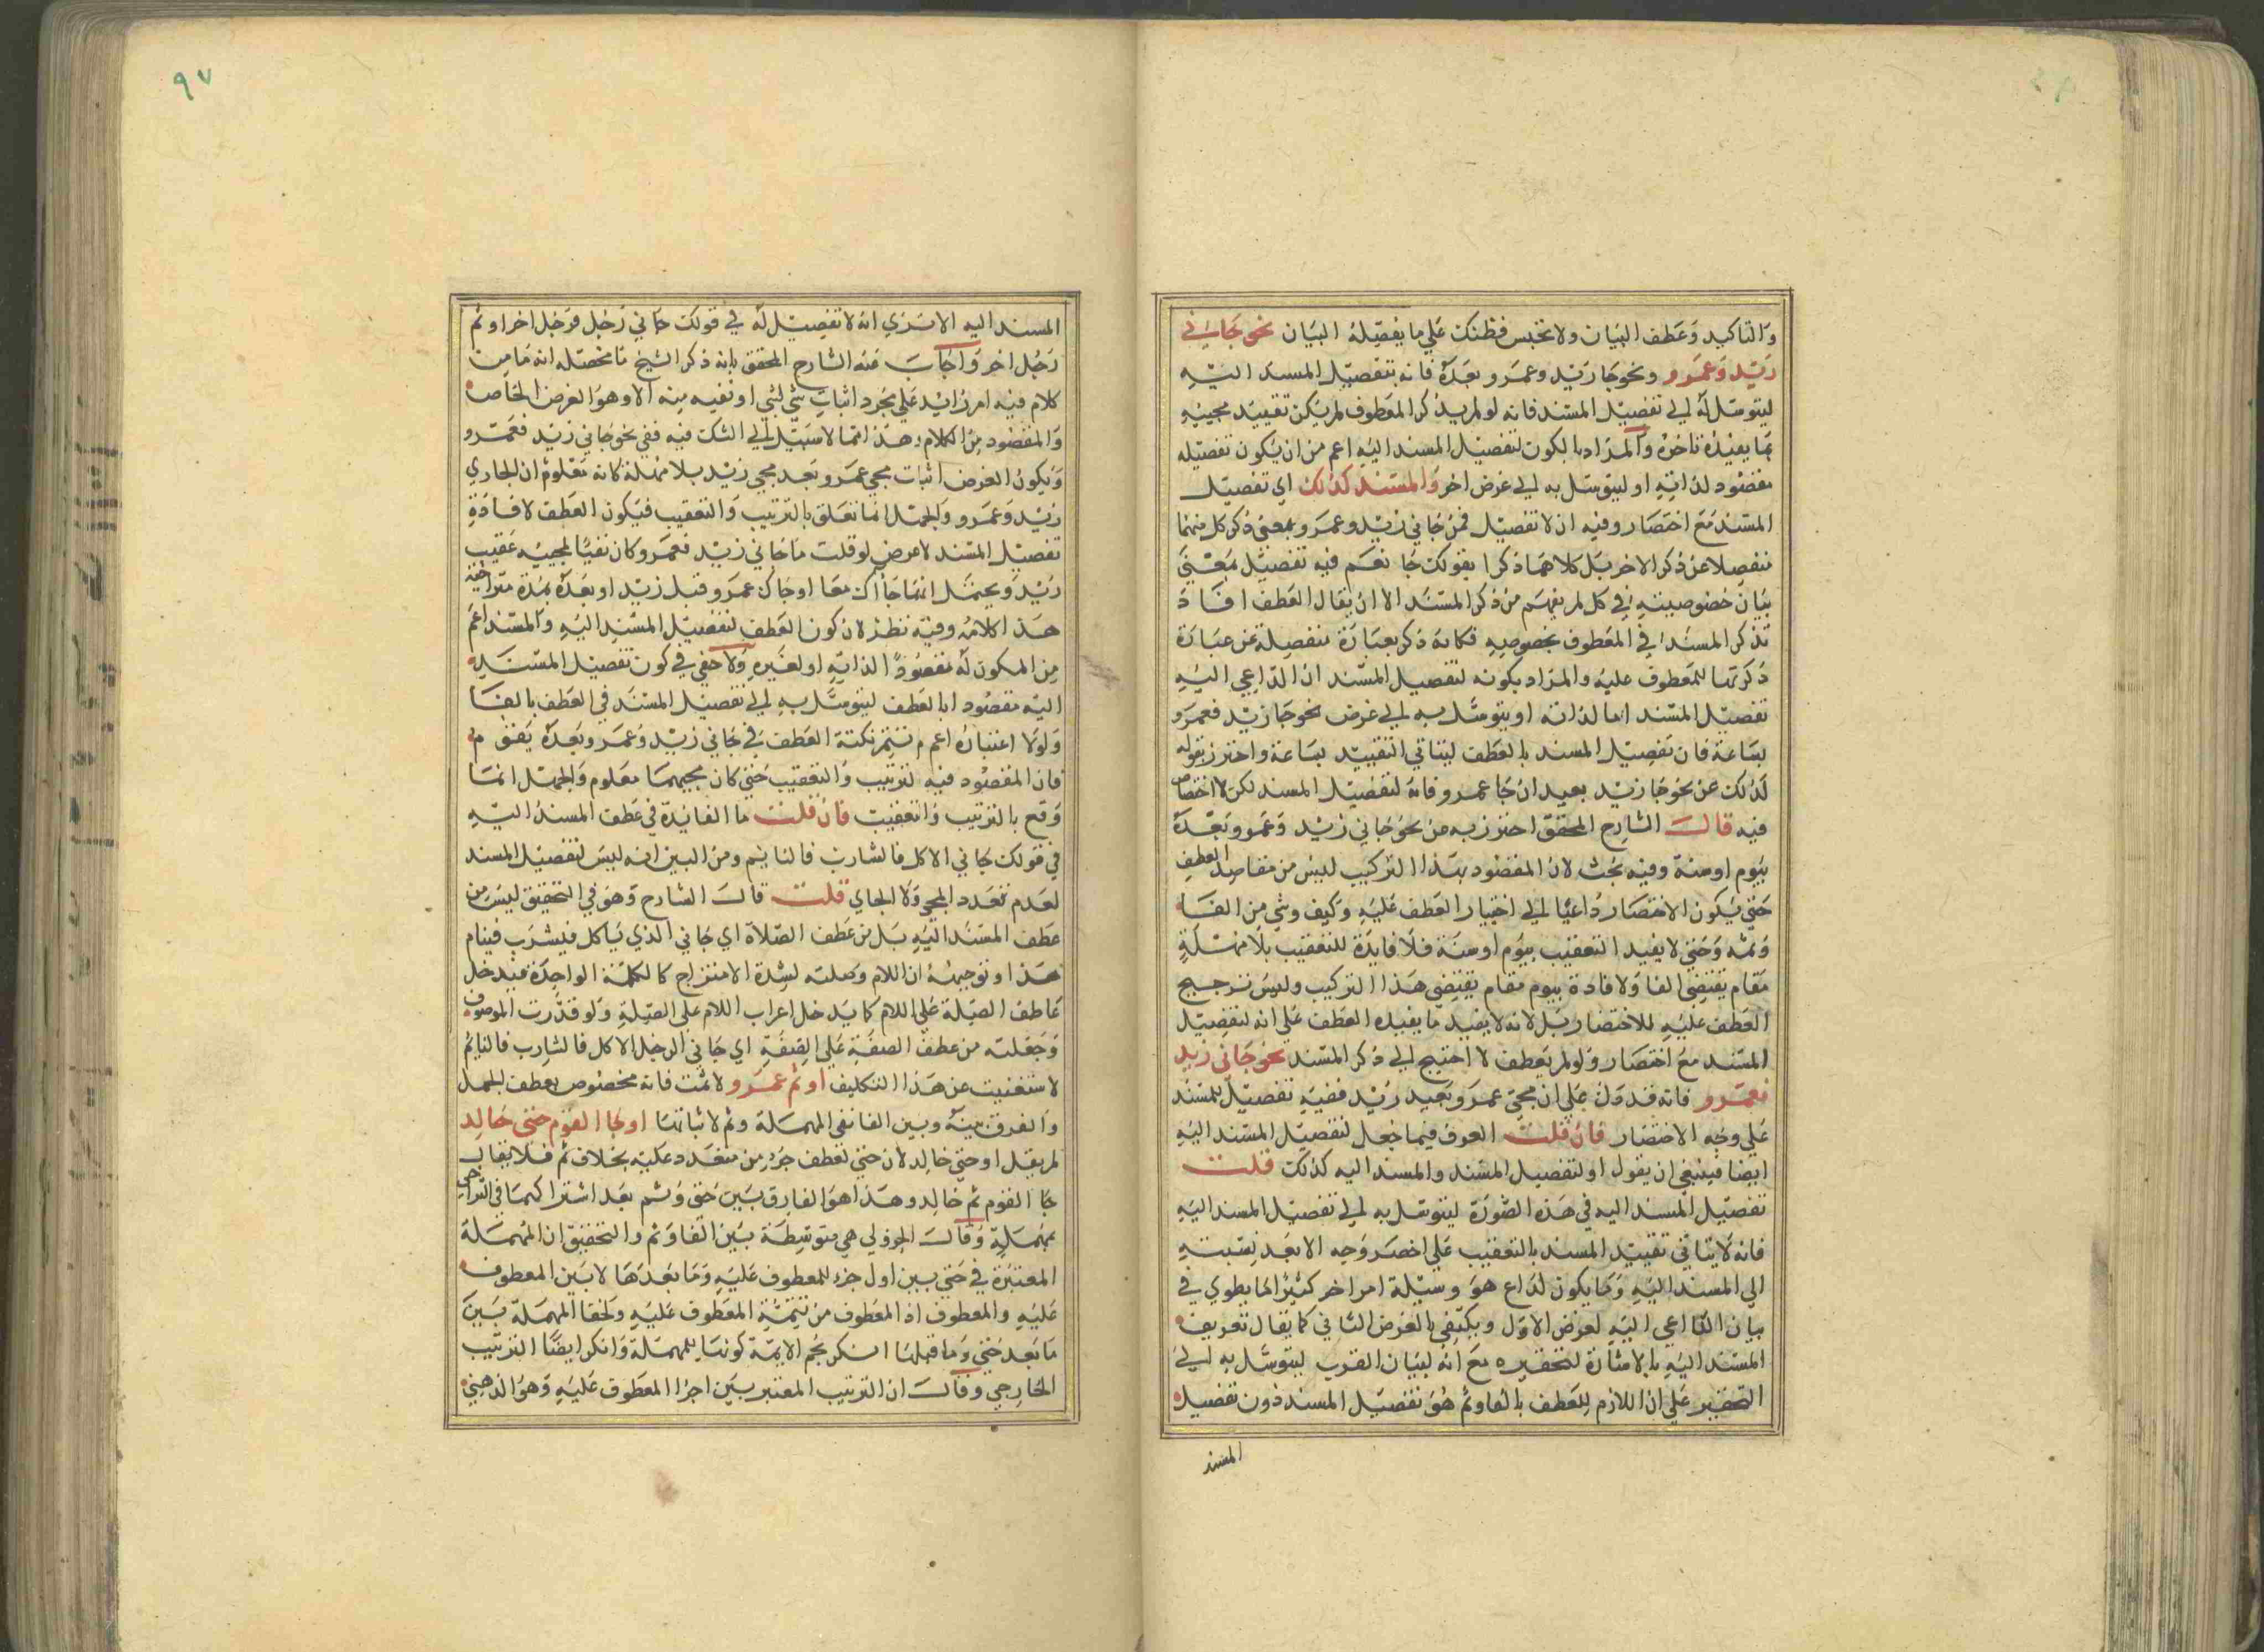 والتاكيد وعطف البيان ولا تحبس فطنتك على ما يفصله البيان نحو جاءني
زيد وعمرو ونحو جا زيد وعمرو بعده فانه بتفصيل المسند اليه
ليتوسل له الى تفصيل المسند فانه لو لم يذكر المعطوف لم يكن تقييد مجييه
بما يفيده تاخره والمراد بالكون لتفصيل المسند اليه اعم من ان يكون تفصيله
مقصود لذاته او ليتوسل به الى غرض اخر والمسند كذلك اي تفصيل
المسند مع اختصار وفيه ان لا تفصيل في نحو جاني زيد وعمرو بمعنى ذكر كل منهما
منفصلا عن ذكر الاخر بل كلاهما ذكرا بقولك جا نعم فيه تفصيل بمعنى
بيان خصوصيته في كل لم يفهم من ذكر المسند الا ان يقال العطف افاد
تذكر المسند في المعطوف بخصوصه فكانه ذكر بعبارة منفصلة عن عبارة
ذكرتها للمعطوف عليه والمراد بكونه لتفصيل المسند ان الداعي اليه
تفصيل المسند اما لذاته او يتوسل به الى غرض نحو جا زيد فعمرو
بساعة فان تفصيل المسند بالعطف ليتاتي التقييد بساعة واحترز بقوله
كذلك عن نحو جا زيد بعيد ان جا عمرو فانه لتفصيل المسند لكن لا اختصار
فيه قال الشارح المحقق احترز به من نحو جاني زيد وعمرو بعده
بيوم او سنة وفيه بحث لان المقصود بهذا التركيب ليس من مقاصد العطف
حتى يكون الاختصار داعيا الى اختيار العطف عليه وكيف وشي من الفا
وثم وحتى لا يفيد التعقيب بيوم او سنة فلا فايدة للتعقيب بلا مهلة
مقام يقتضي الفا ولافادة بيوم مقام يقتضي هذا التركيب وليس ترجيح
العطف عليه للاختصار بل لانه لا يفيد ما يفيده العطف على انه لتفصيل
المسند مع اختصار ولو لم يعطف لا احتيج الى ذكر المسند نحو جاني زيد
فعمرو فانه قد دل على ان مجي عمرو بعيد زيد ففيه تفصيل للمسند
على وجه الاختصار فان قلت العرف فيما جعل لتفصيل المسند اليه
ايضا فينبغي ان يقول او لتفصيل المسند والمسند اليه كذلك قلت
تفصيل المسند اليه في هذه الصورة ليتوسل به الى تفصيل المسند اليه
فانه لا يتاتي تقييد المسند بالتعقيب على اخصر وجه الا بعد نسبته
الى المسند اليه وكما يكون لداع هو وسيلة امر اخر كثيرا ما يطوي في
بيان الداعي اليه لغرض الاول ويكتفي بالغرض الثاني كما يقال تعريف
المسند اليه بالاشارة لتحقيره مع انه لبيان القرب ليتوسل به الى
التحقير على ان اللازم للعطف بالفا وثم هو تفصيل المسند دون تفصيل
المسند
٩٧
المسند اليه الا ترى انه لا تفصيل له في قولك جاني رجل فرجل اخر او ثم
رجل اخر واجاب عنه الشارح المحقق بانه ذكر الشيخ ما محصله انه ما من
كلام فيه امر زايد على مجرد اثبات شي لشي او نفيه منه الا وهو الغرض الخاص
والمقصود من الكلام وهذا مما لا سبيل الى الشك فيه ففي نحو جاني زيد فعمرو
ويكون الغرض اثبات مجي عمرو بعد مجي زيد بلا مهلة كانه معلوم ان الجاري
زيد وعمرو والجهل انما تعلق بالترتيب والتعقيب فيكون العطف لافادة
تفصيل المسند لا عرض لو قلت ما جاني زيد فعمرو كان نفيا لمجييه عقيب
زيد ويحتمل انهما جااك معا او جاك عمرو قبل زيد او بعده بمدة متراخية
هذا كلامه وفيه نظر لان كون العطف لتفصيل المسند اليه والمسند اعم
من المكون له مقصودا لذاته او لغيره ولا خفي في كون تفصيل المسند
اليه مقصودا بالعطف ليتوسل به الى تفصيل المسند في العطف بالفا
ولولا اعتباره اعم لم تتم نكتة العطف في جاني زيد وعمرو بعده
فان المقصود فيه لترتيب والتعقيب حتى كان مجييهما معلوم والجهل انما
وقع بالترتيب والتعقيب فان قلت ما الفايدة في عطف المسند اليه
في قولك جاني الاكل فالشارب فالنايم ومن البين انه ليس لتفصيل المسند
لعدم تعدد المجي ولا الجاي قلت قال الشارح وهو في التحقيق ليس من
عطف المسند اليه بل من عطف الصلاة اي جاني الذي ياكل فيشرب فينام
هذا وتوجيهه ان اللام وصلته لشدة الامتزاج كالكلمة الواحدة فيدخل
عاطف الصلة على اللام كما يدخل اعراب اللام على الصلة ولو قدرت الموصوف
وجعلته من عطف الصفة على الصفة اي جاني الرجل الاكل فالشارب فالنايم
لاستغنيت عن هذا التكليف او ثم عمرو لا ثمت فانه مخصوص بعطف الجمل
والفرق بينه وبين الفا نفي المهملة وثم لاثباتها او جا القوم حتى خالد
لم يقل او حتى خالد لان حتى لعطف جزء من متعدد عليه بخلاف ثم فلا يقال
جا القوم ثم خالد وهذا هو الفارق بين حتى وثم بعد اشتراكهما في التراخي
بمهملة وقال الجزولي هي متوسطة بين الفا وثم والتحقيق ان المهملة
المعتبرة في حتى بين اول جزء للمعطوف عليه وما بعدها لا بين المعطوف
عليه والمعطوف اذ المعطوف من تتمة المعطوف عليه ولخفا المهملة بين
ما بعد حتى وما قبلها انكر نجم الايمة كونها للمهملة وانكر ايضا الترتيب
الخارجي وقال ان الترتيب المعتبر بين اجزا المعطوف عليه وهو الذهني